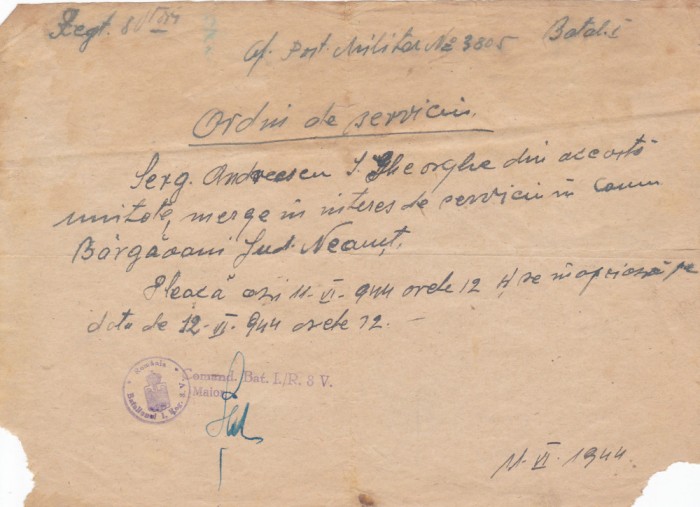 Regt. 8 Vtori
Of. Post. Militar № 3805
Batal. I
Ordin de serviciu.
Serg. Andreescu I. Gheorghe din aceasta
unitate, merge în interes de serviciu în Comuna
Bârgăoani Jud. Neamț.
Pleacă azi 11-VI-944 orele 12 și se înapoiază pe
data de 12-VI-944 orele 12.-
România
Batalionul I.
Comand. Bat. I./R. 8 V.
Maior
11-VI-1944